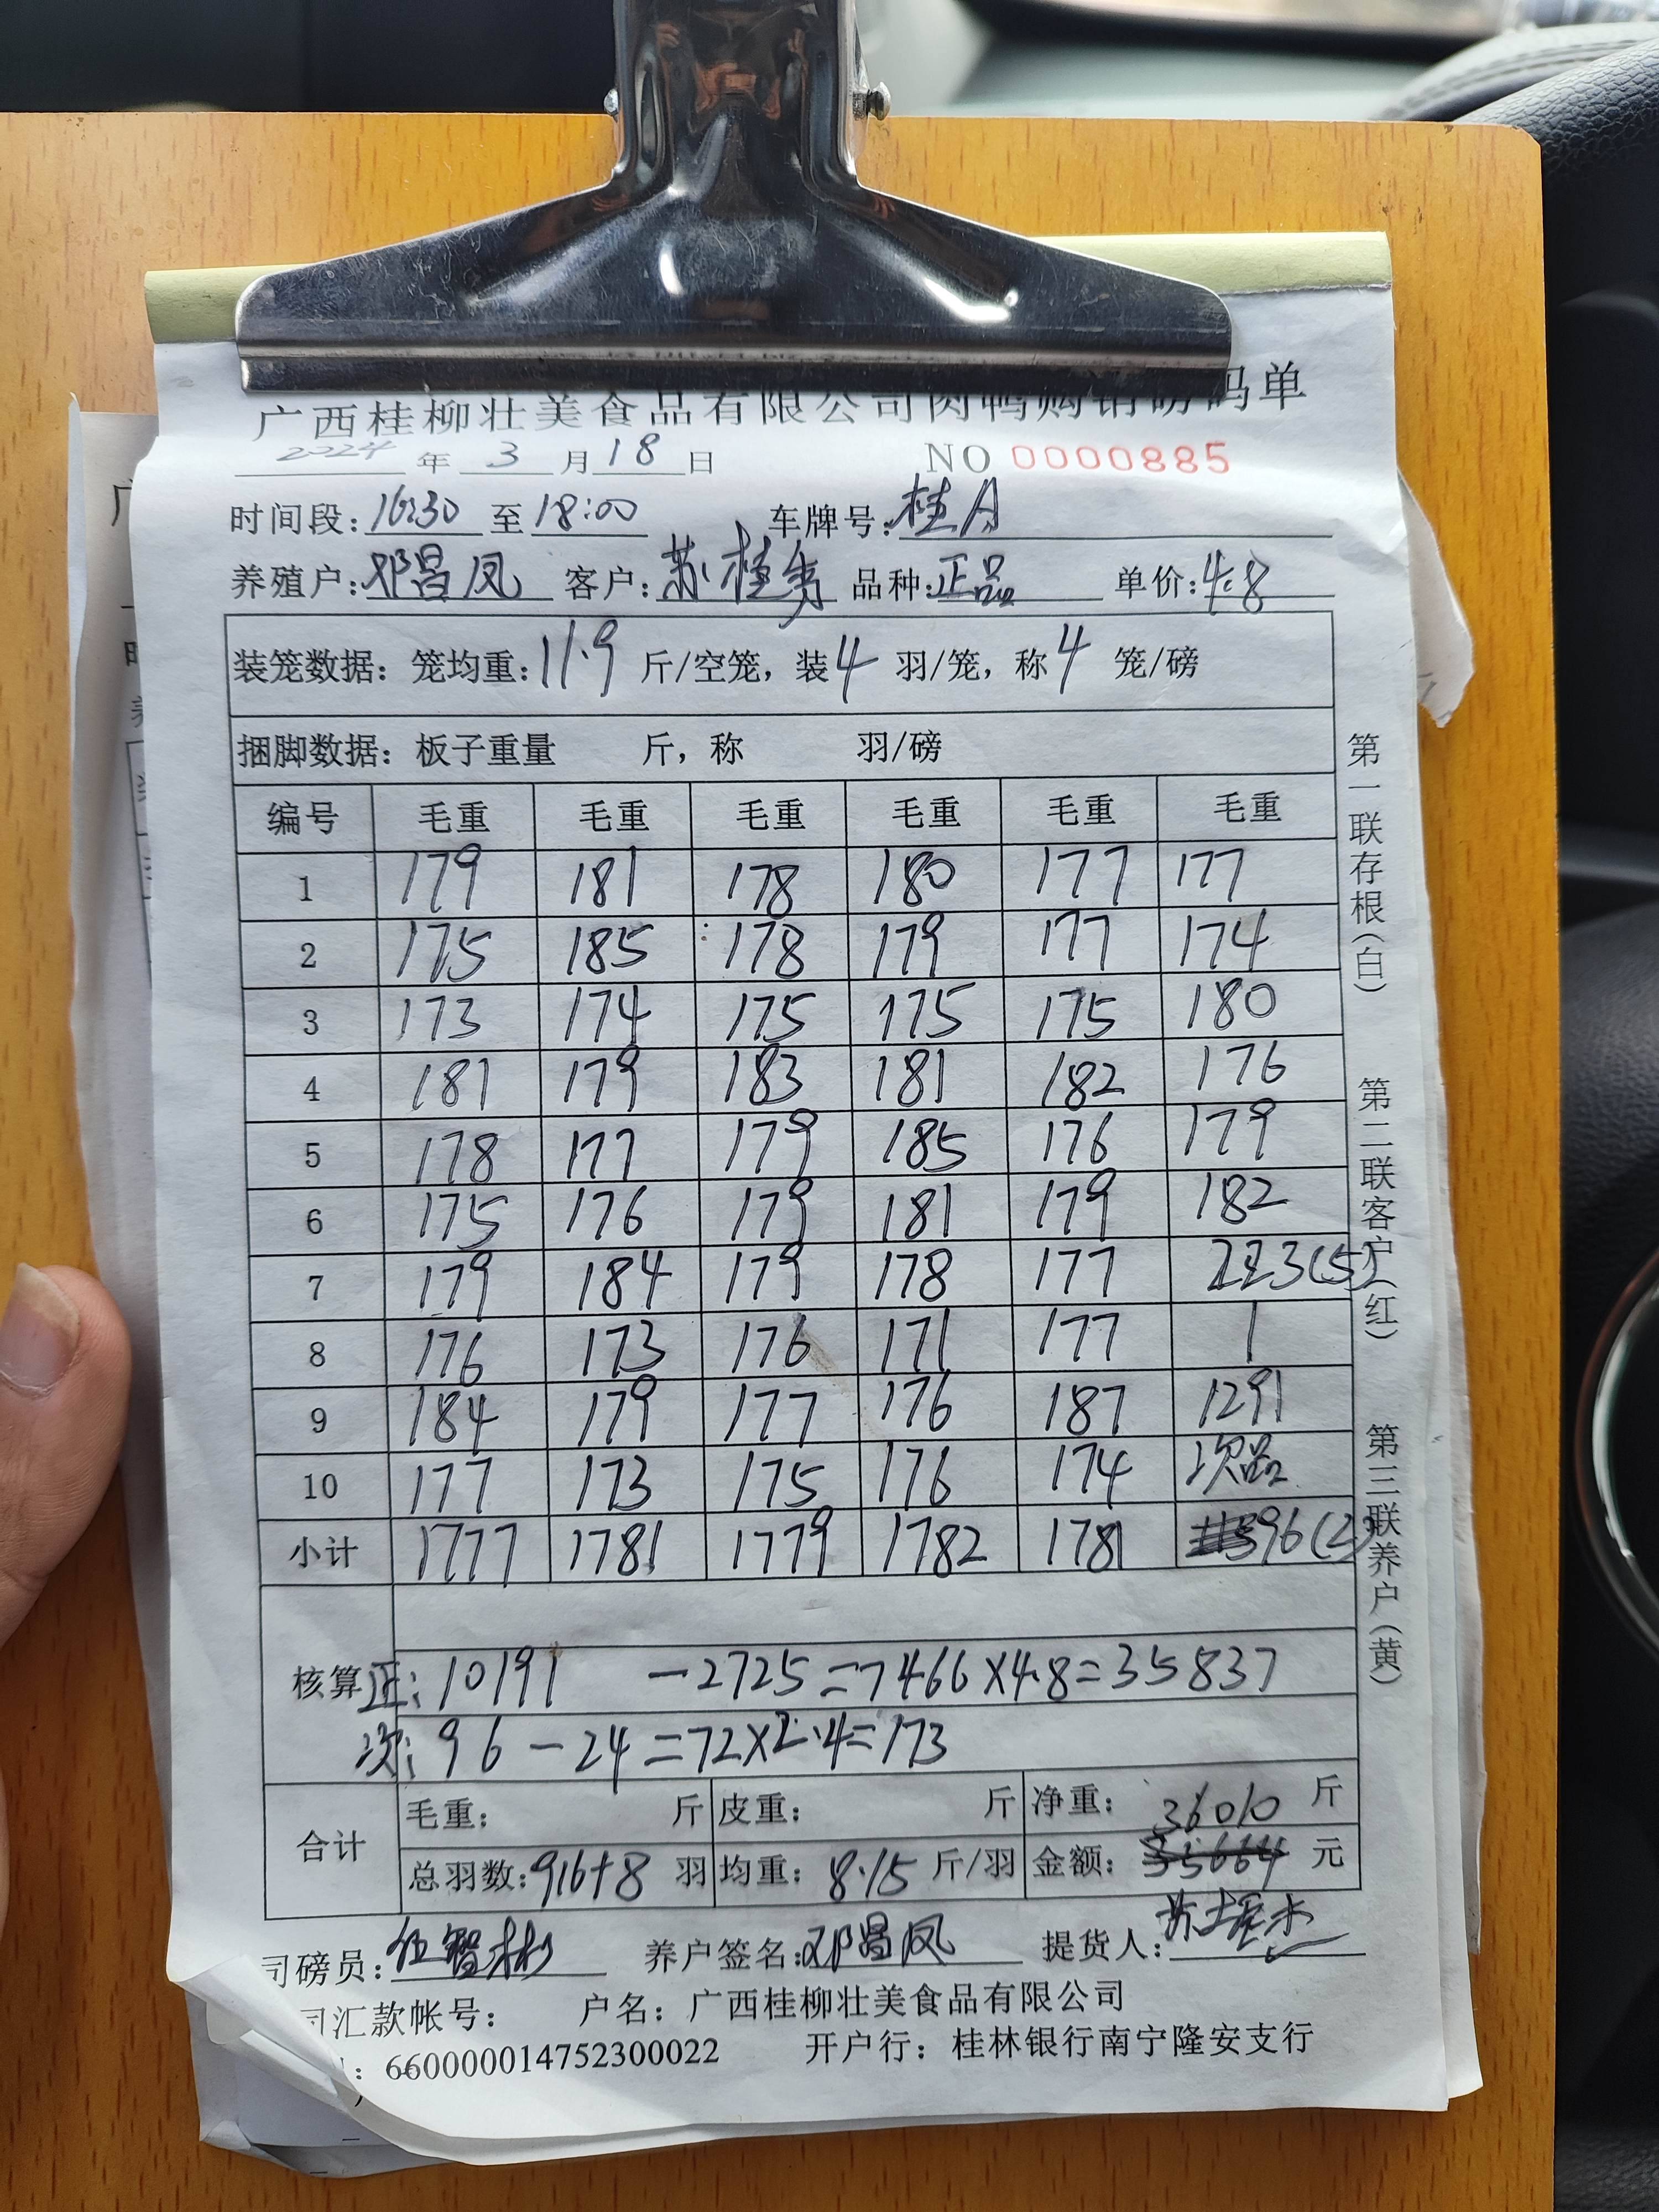 广西桂柳壮美食品有限公司肉鸭购销磅码单
2024 年 3 月 18 日 NO 0000885
时间段: 16:30 至 18:00 车牌号: 桂A
养殖户: 邓昌凤 客户: 苏桂秀 品种: 正品 单价: 4.8
装笼数据: 笼均重: 11.9 斤/空笼, 装 4 羽/笼, 称 4 笼/磅
捆脚数据: 板子重量 斤, 称 羽/磅
编号 毛重 毛重 毛重 毛重 毛重 毛重
1 179 181 178 180 177 177
2 175 185 178 179 177 174
3 173 174 175 175 175 180
4 181 179 183 181 182 176
5 178 177 179 185 176 179
6 175 176 179 181 179 182
7 179 184 179 178 177 223(5)
8 176 173 176 171 177 1
9 184 179 177 176 187 1291
10 177 173 175 176 174 次品
小计 1777 1781 1779 1782 1781 96(2)
核算 正: 10191 -2725=7466×4.8=35837
次: 96-24=72×2.4=173
合计 毛重: 斤 皮重: 斤 净重: 36010 斤
总羽数: 916+8 羽 均重: 8.15 斤/羽 金额: 35664 元
司磅员: 伍智彬 养户签名: 邓昌凤 提货人:
司汇款帐号: 户名: 广西桂柳壮美食品有限公司
: 660000014752300022 开户行: 桂林银行南宁隆安支行
第一联存根(白)
第二联客户(红)
第三联养户(黄)